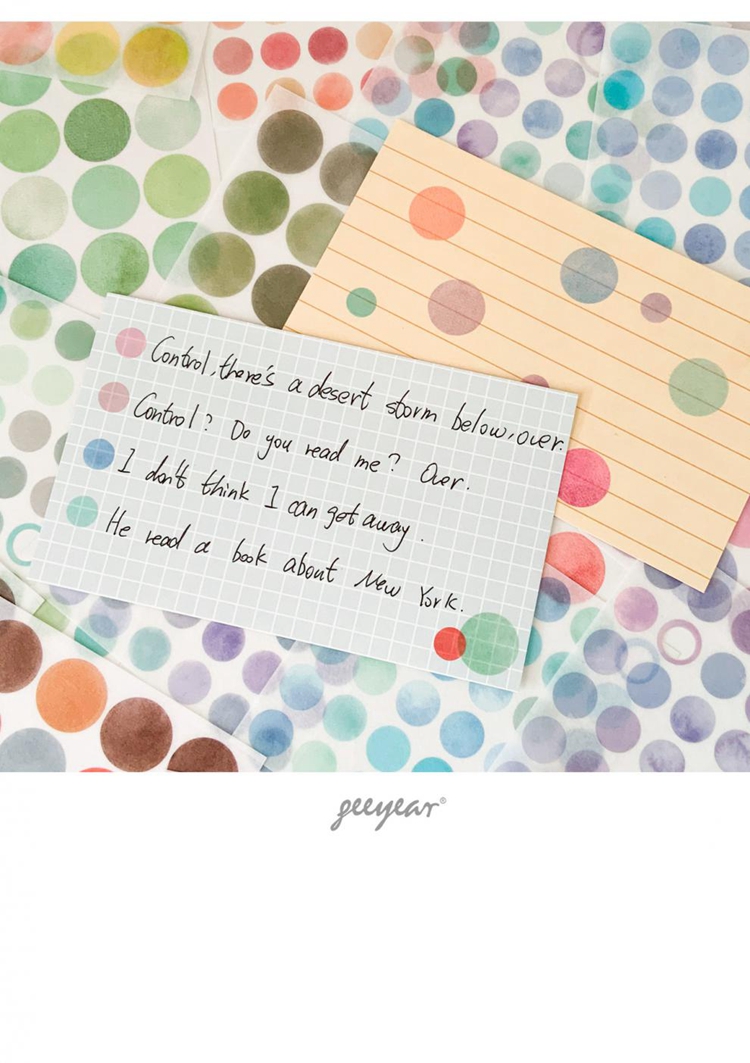 Control, there's a desert storm below, over.
Control? Do you read me? Over.
I don't think I can get away.
He read a book about New York.
geeyear®